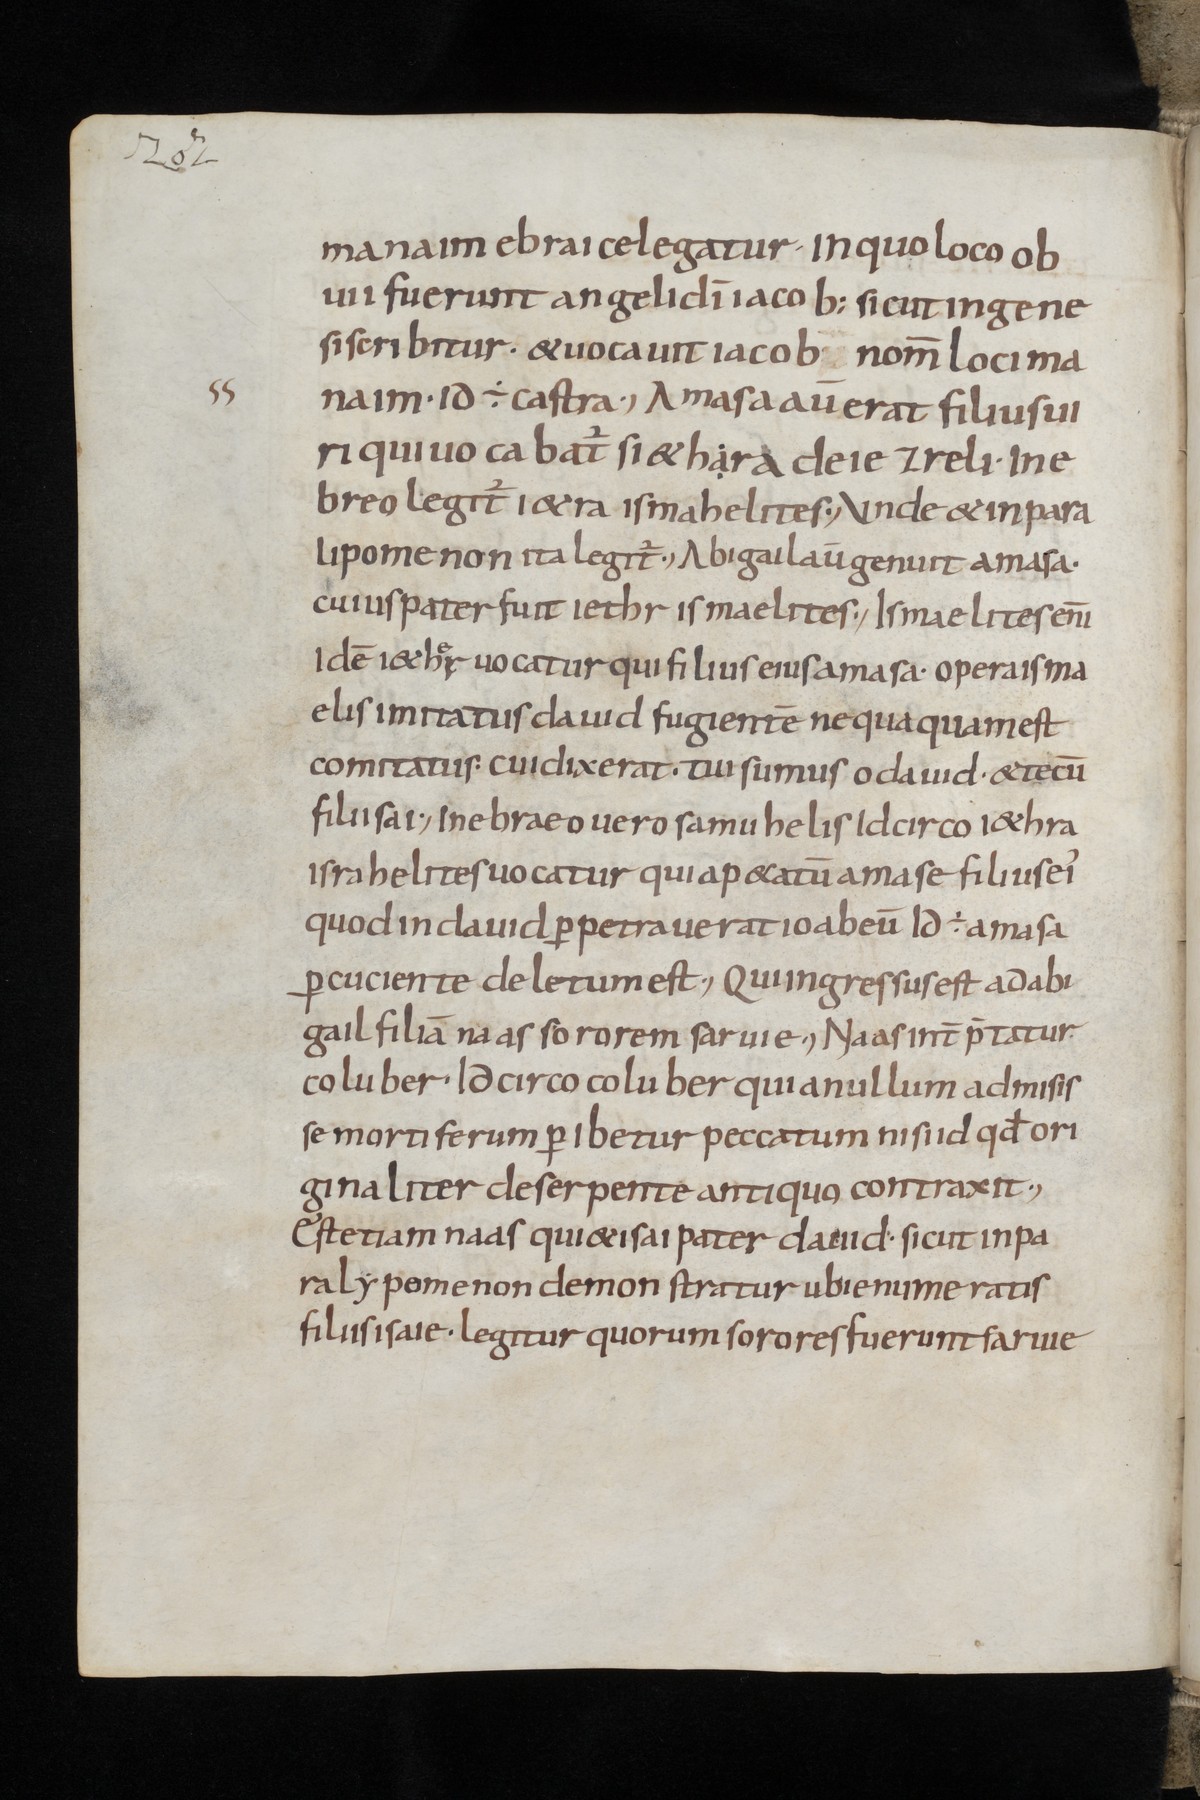 manaim ebraice legatur. In quo loco ob
uii fuerunt angeli dī iacob; sicut in gene
si scribitur. & uocauit iacob nom̄ loci ma
ss naim. id ÷ castra., Amasa aū erat filius ui
ri qui uocabat᷑ si & hạra de iezreli. In e
breo legit᷑ i&ra ismahelites., Unde & in para
lipomenon ita legit᷑., Abigail aū genuit amasa.
cuius pater fuit iethr ismaelites., Ismaelites eni̅
idē i&her uocatur qui filius eius amasa. opera isma
elis imitatus dauid fugientē nequaquam est
comitatus. cui dixerat. tui sumus o dauid. & tecū
fili isai., In ebraeo uero samuhelis Idcirco i&hra
israhelites uocatur quia p&catū amase filius ei᾽
quod in dauid ꝑpetrauerat ioab eū id ÷ amasa
ꝑcuciente deletum est., Qui ingressus est ad abi
gail filiā naas sororem saruie., Naas int̄ p̄tatur
coluber. Idcirco coluber quia nullum admisis
se mortiferum ꝑibetur peccatum nisi id qđ ori
ginaliter de serpente antiquo contraxit.,
Est etiam naas qui & isai pater dauid. sicut in pa
ralẏpomenon demonstratur ubi enumeratis
filiis isaie. legitur quorum sorores fuerunt saruie